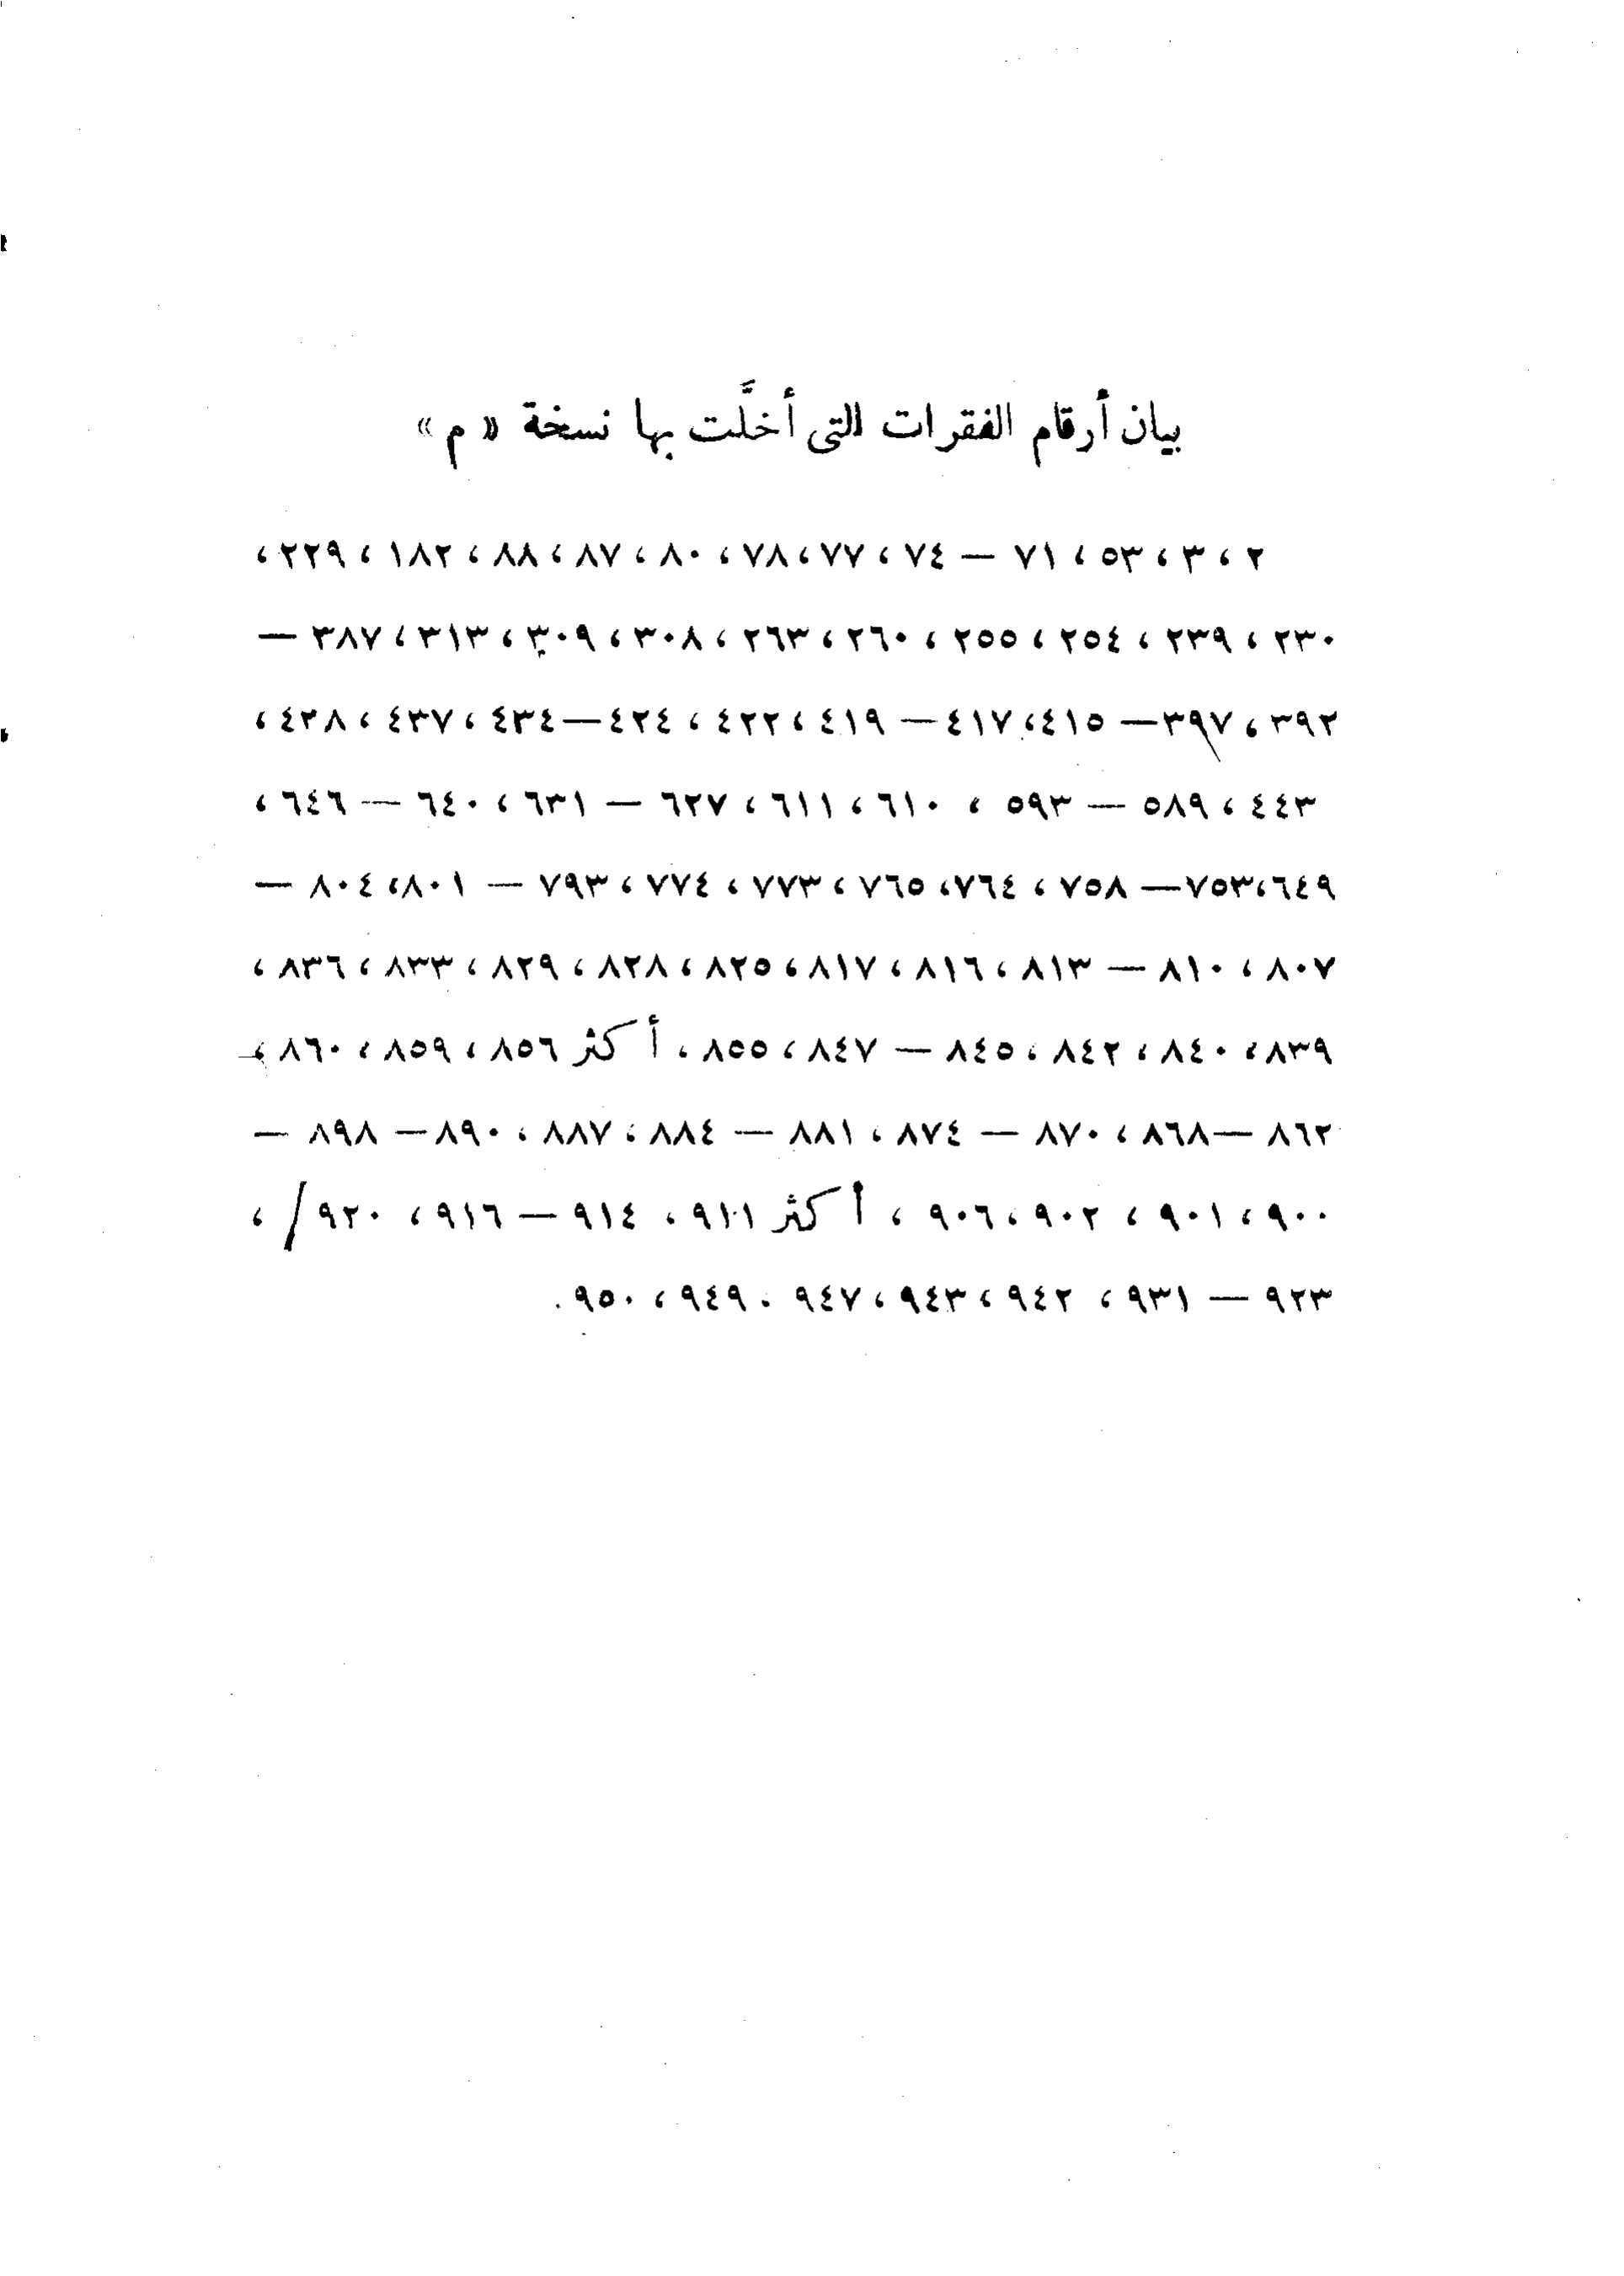 بيان أرقام الفقرات التى أخلَّت بها نسخة «م»
٢ ، ٣ ، ٥٣ ، ٧١ — ٧٤ ، ٧٧ ، ٧٨ ، ٨٠ ، ٨٧ ، ٨٨ ، ١٨٢ ، ٢٢٩ ،
٢٣٠ ، ٢٣٩ ، ٢٥٤ ، ٢٥٥ ، ٢٦٠ ، ٢٦٣ ، ٣٠٨ ، ٣٠٩ ، ٣١٣ ، ٣٨٧ —
٣٩٢ ، ٣٩٧ — ٤١٥ ، ٤١٧ — ٤١٩ ، ٤٢٢ ، ٤٢٤ — ٤٣٤ ، ٤٣٧ ، ٤٣٨ ،
٤٤٣ ، ٥٨٩ — ٥٩٣ ، ٦١٠ ، ٦١١ ، ٦٢٧ — ٦٣١ ، ٦٤٠ — ٦٤٦ ،
٦٤٩ ، ٧٥٣ — ٧٥٨ ، ٧٦٤ ، ٧٦٥ ، ٧٧٣ ، ٧٧٤ ، ٧٩٣ — ٨٠١ ، ٨٠٤ —
٨٠٧ ، ٨١٠ — ٨١٣ ، ٨١٦ ، ٨١٧ ، ٨٢٥ ، ٨٢٨ ، ٨٢٩ ، ٨٣٣ ، ٨٣٦ ،
٨٣٩ ، ٨٤٠ ، ٨٤٢ ، ٨٤٥ — ٨٤٧ ، ٨٥٥ ، أكثر ٨٥٦ ، ٨٥٩ ، ٨٦٠ ،
٨٦٢ — ٨٦٨ ، ٨٧٠ — ٨٧٤ ، ٨٨١ — ٨٨٤ ، ٨٨٧ ، ٨٩٠ — ٨٩٨ —
٩٠٠ ، ٩٠١ ، ٩٠٢ ، ٩٠٦ ، أكثر ٩١١ ، ٩١٤ — ٩١٦ ، ٩٢٠/ ،
٩٢٣ — ٩٣١ ، ٩٤٢ ، ٩٤٣ ، ٩٤٧ . ٩٤٩ ، ٩٥٠ .